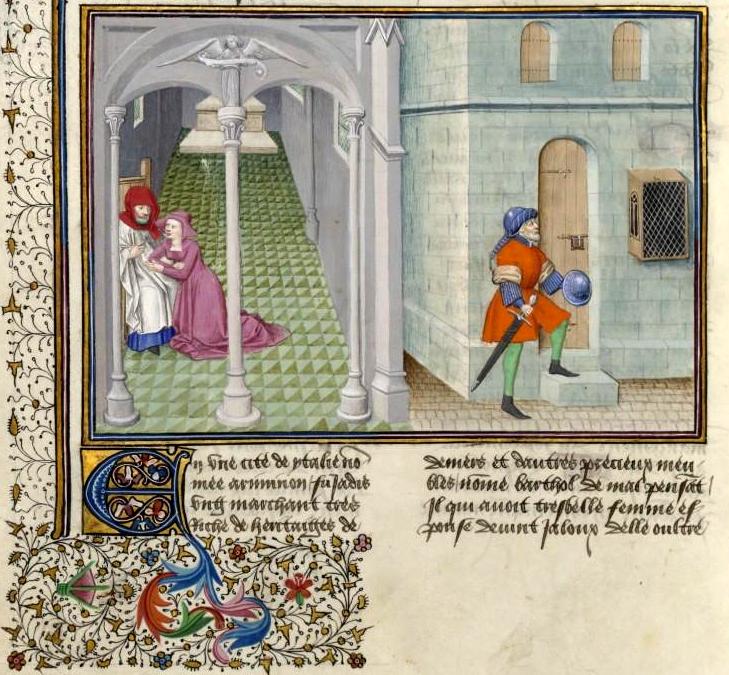 En vne cite de ytalie no
mee ariminon fu Jadis
vng marchant tres
Riche de heritaiges de
deniers et dautres precieux meu-
bles nome barthol de mal pensat
Il qui auoit tresbelle femme es
pouse deuint Jaloux delle oultre